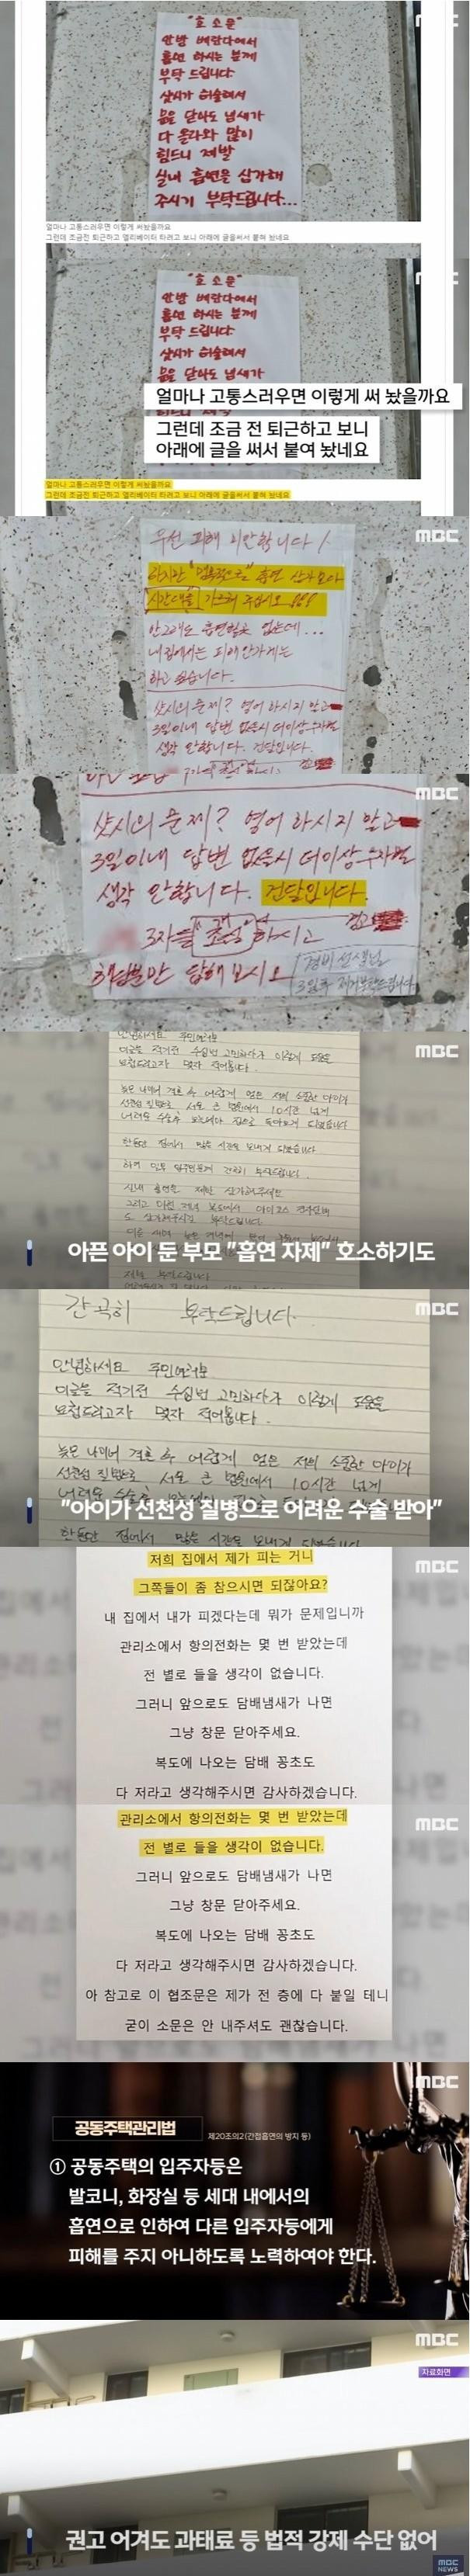 MBC
"호소문"
안방 베란다에서
흡연 하시는 분께
부탁 드립니다.
샷시가 허술해서
문을 닫아도 냄새가
다 올라와 많이
힘드니 제발
실내 흡연을 삼가해
주시기 부탁드립니다...
얼마나 고통스러우면 이렇게 써놨을까요
그런데 조금전 퇴근하고 엘리베이터 타려고 보니 아래에 글을써서 붙혀 놨네요
MBC
"호소문"
안방 베란다에서
흡연 하시는 분께
부탁 드립니다.
샷시가 허술해서
문을 닫아도 냄새가
얼마나 고통스러우면 이렇게 써 놨을까요
그런데 조금 전 퇴근하고 보니
아래에 글을 써서 붙여 놨네요
얼마나 고통스러우면 이렇게 써놨을까요
그런데 조금전 퇴근하고 엘리베이터 타려고 보니 아래에 글을써서 붙혀 놨네요
MBC
우선 피해 미안합니다!
하지만 "법적으로" 흡연
시간대를
안그래도 흡연할곳 없는데...
내집에서는 피해안가게는
하고 싶습니다.
샷시의 문제? 영어 하시지 말고
3일이내 답변 없을시 더이상 수자별
생각 안합니다. 건달입니다.
MBC
샷시의 문제? 영어 하시지 말고
3일이내 답변 없을시 더이상 수자별
생각 안합니다. 건달입니다.
3자를 조심 하시고
해답만 답해보시오
경비 선생님
3일후 제거부탁드립니다
MBC
안녕하세요 주민여러분
이글을 적기전 수십번 고민하다가 이렇게 도움을
요청드리고자 몇자 적어봅니다.
늦은 나이에 결혼 후 어렵게 얻은 저희 소중한 아이가
선천성 질병으로 서울 큰 병원에서 10시간 넘게
어려운 수술후 집으로 돌아오게 되었습니다
한동안 집에서 많은 시간을 보내게 되었습니다
하여 일부 입주민분께 간곡히 부탁드립니다.
실내 흡연은 제발 삼가해주세요
아픈 아이 둔 부모 "흡연 자제" 호소하기도
MBC
간곡히 부탁드립니다.
안녕하세요 주민여러분
이글을 적기전 수십번 고민하다가 이렇게 도움을
요청드리고자 몇자 적어봅니다.
늦은 나이에 결혼 후 어렵게 얻은 저희 소중한 아이가
선천성 질병으로 서울 큰 병원에서 10시간 넘게
어려운 수술후
"아이가 선천성 질병으로 어려운 수술 받아"
한동안 집에서 많은 시간을 보내게 되었습니다
MBC
저희 집에서 제가 피는 거니
그쪽들이 좀 참으시면 되잖아요?
내 집에서 내가 피겠다는데 뭐가 문제입니까
관리소에서 항의전화는 몇 번 받았는데
전 별로 들을 생각이 없습니다.
그러니 앞으로도 담배냄새가 나면
그냥 창문 닫아주세요.
복도에 나오는 담배 꽁초도
다 저라고 생각해주시면 감사하겠습니다.
MBC
관리소에서 항의전화는 몇 번 받았는데
전 별로 들을 생각이 없습니다.
그러니 앞으로도 담배냄새가 나면
그냥 창문 닫아주세요.
복도에 나오는 담배 꽁초도
다 저라고 생각해주시면 감사하겠습니다.
아 참고로 이 협조문은 제가 전 층에 다 붙일 테니
굳이 소문은 안 내주셔도 괜찮습니다.
MBC
공동주택관리법
제20조의2(간접흡연의 방지 등)
① 공동주택의 입주자등은
발코니, 화장실 등 세대 내에서의
흡연으로 인하여 다른 입주자등에게
피해를 주지 아니하도록 노력하여야 한다.
MBC
자료화면
권고 어겨도 과태료 등 법적 강제 수단 없어
MBC
NEWS